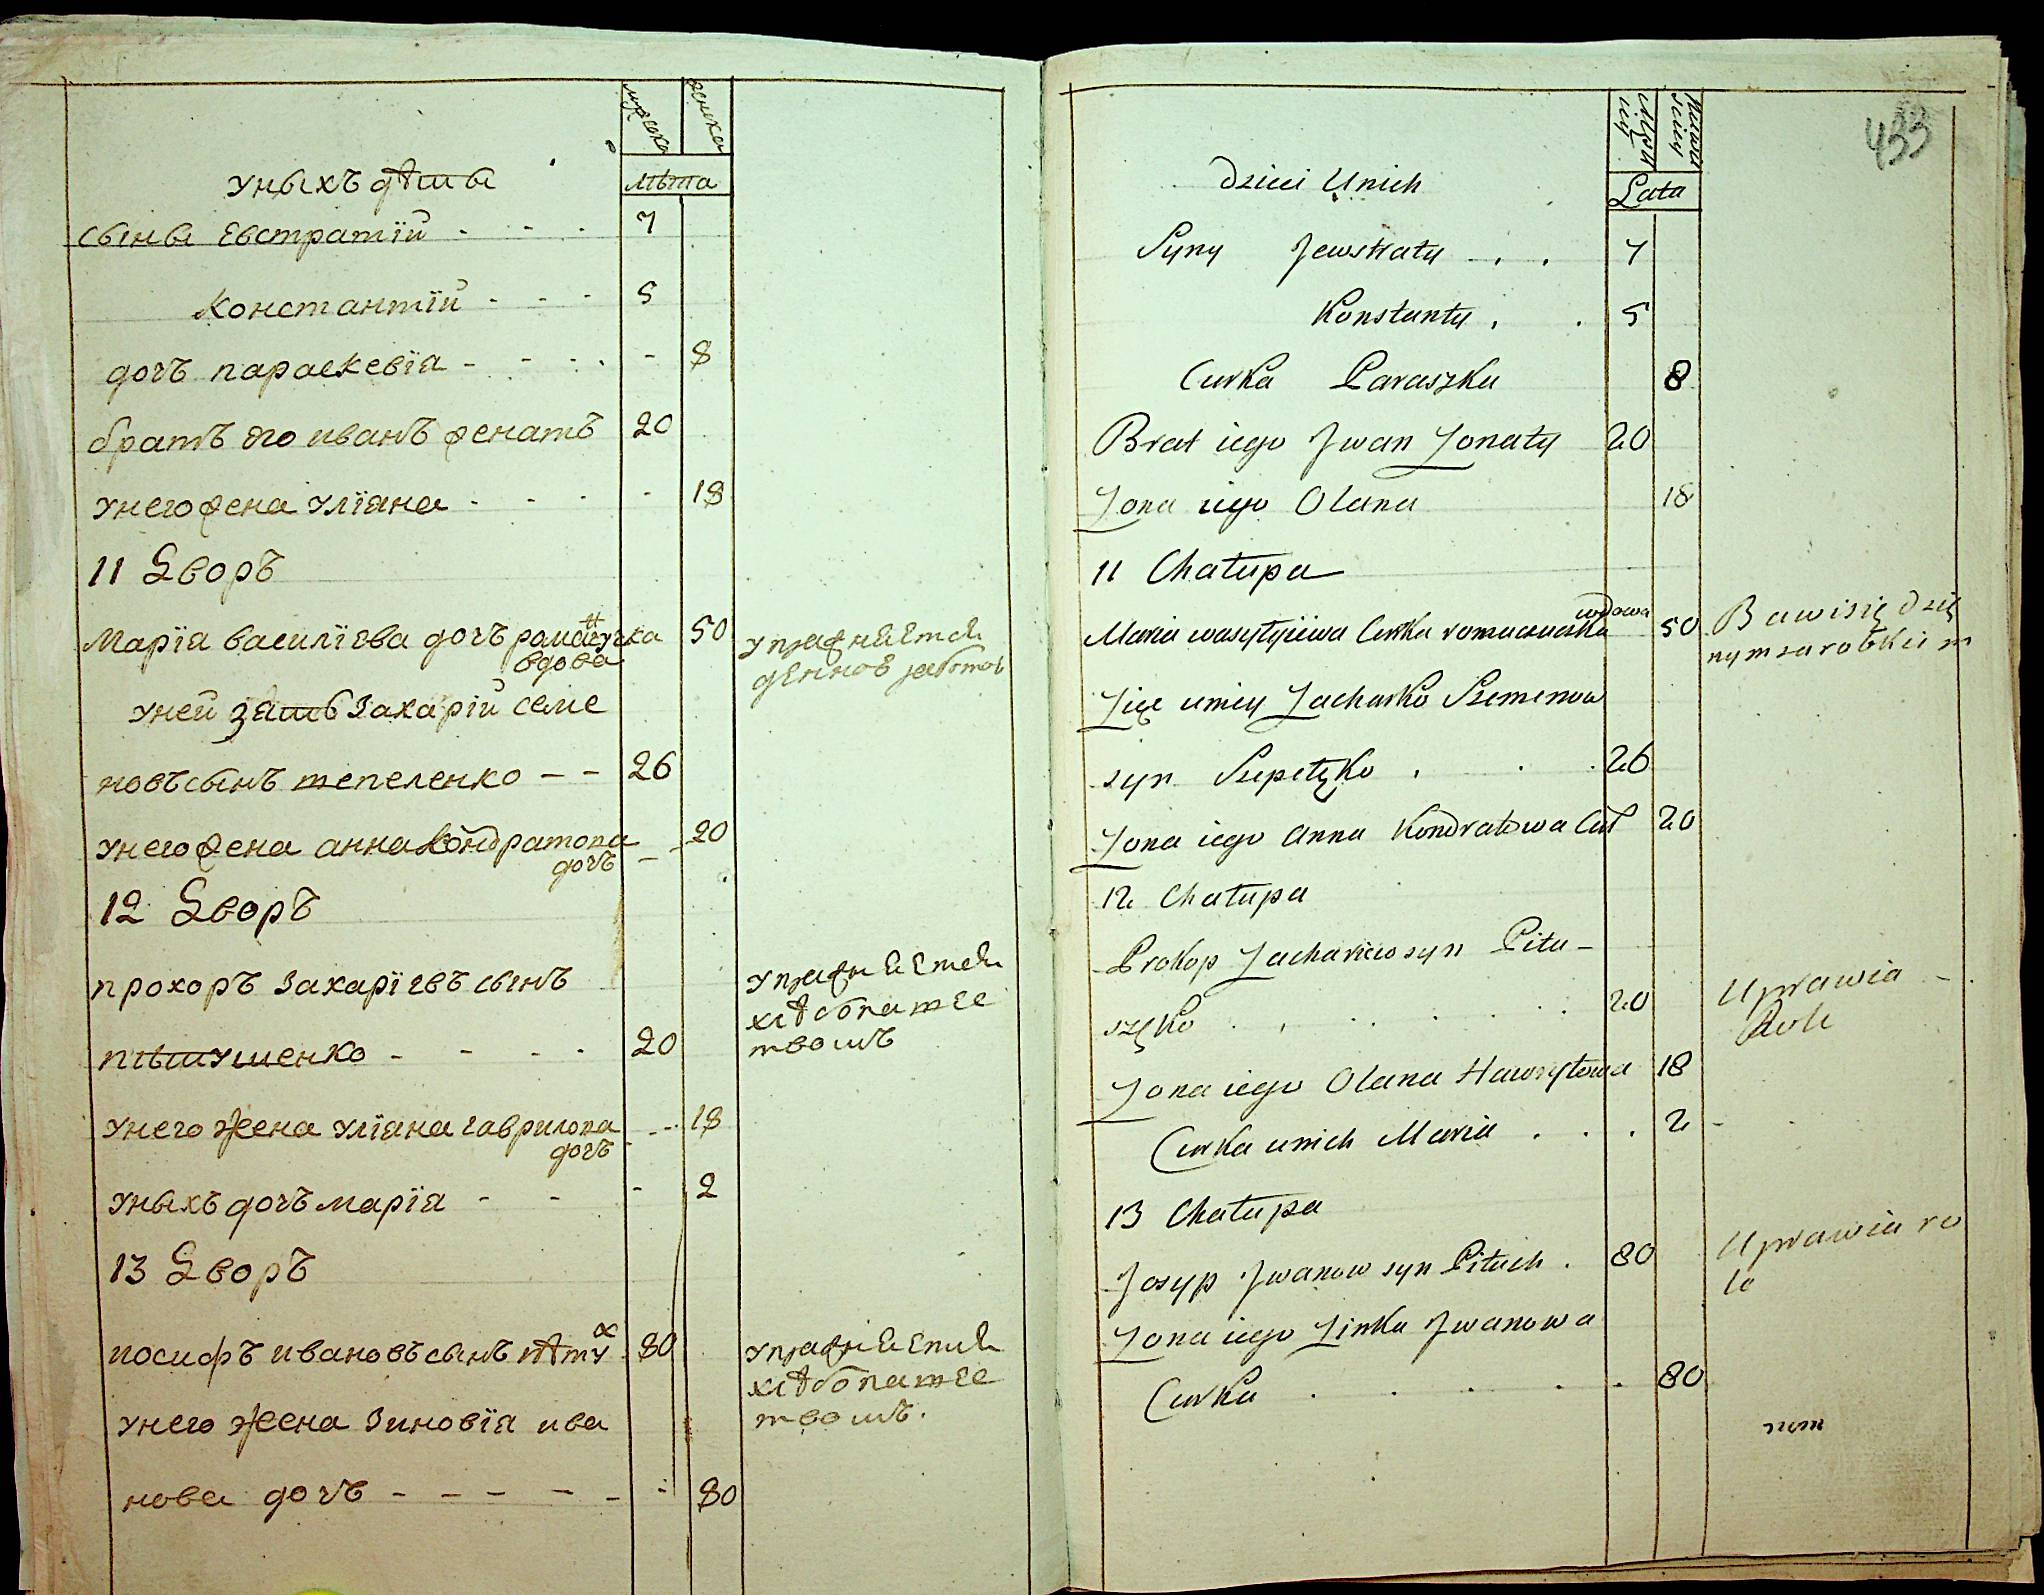 мужеска
женска
лѣта
У ныхъ дѣти
сыны Евстратїй - - - 7
Константїй - - - 5
дочъ параскевїя - - - - 8
братъ его иванъ женатъ 20
у него жена улїяна - - - - 18
11 Дворъ
Марїя василїева дочъ романчучка 50
вдова
упражняется
денною работою
у ней зять Захарїй семе
новъ сынъ тепеленко - - 26
у него жена анна кондратова - - 20
дочъ
12 Дворъ
прохоръ Захарїевъ сынъ
пѣтушенко - - - - 20
упражняется
хлѣбопаше
твомъ
у него жена улїяна гаврилова - - 18
дочъ
у ныхъ дочъ марїя - - - 2
13 Дворъ
иосифъ ивановъ сынъ пѣтух 80
упражняется
хлѣбопаше
твомъ.
у него жена Зиновїя ива
нова дочъ - - - - - - 80
433
Lata
Dzieci Unich
Syny Jewstraty . . 7
Konstanty . . 5
Curka Paraszka 8
Brat iego Jwan Zonaty 20
Zona iego Olana 18
11 Chałupa
wdowa
Maria wasylyiiwa Curka romaczuczka 50
Bawi się dzię
nym zarobkiem
Zięć umiey Zacharko Szemenow
syn Szepetzko . . . 26
Zona iego Anna Kondratowa Cur 20
12 Chałupa
Prokop Zachariew syn Pitu-
szęko . . . . . . 20
Uprawia
Role
Zona iego Olana Hawryłowa 18
Curka unich Maria . . . 2 -
13 Chałupa
Josyp Jwanow syn Pituch . 80
Uprawia ro
le
Zona iego Zinka Jwanowa
Curka . . . . . 80